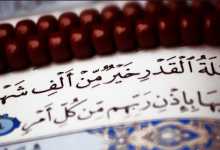 لَةُ ٱلْقَدْرِ خَيْرٌ مِّنْ أَلْفِ شَهْ
هَا بِإِذْنِ رَبِّهِم مِّن كُلِّ أَمْرٍ